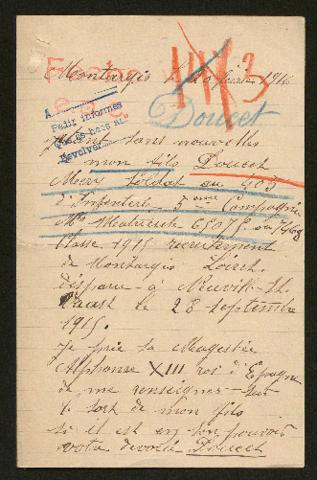 Fecha
Montargis le 20 février 1916
A
Pedir informes
Devolver
Doucet
étant sans nouvelles
mon fils Doucet
Mery soldat au 403
d'Infanterie 5eme Compagnie
No Matricule 6507
classe 1915 recrutement
de Montargis Loiret.
disparu à Neuvill St
Vaast le 28 septembre
1915.
je prie sa Magestée
Alphonse XIII roi d'Espagne
de me renseigner sur
le sort de mon fils
si il est en son pouvoir
votre dévoué Doucet